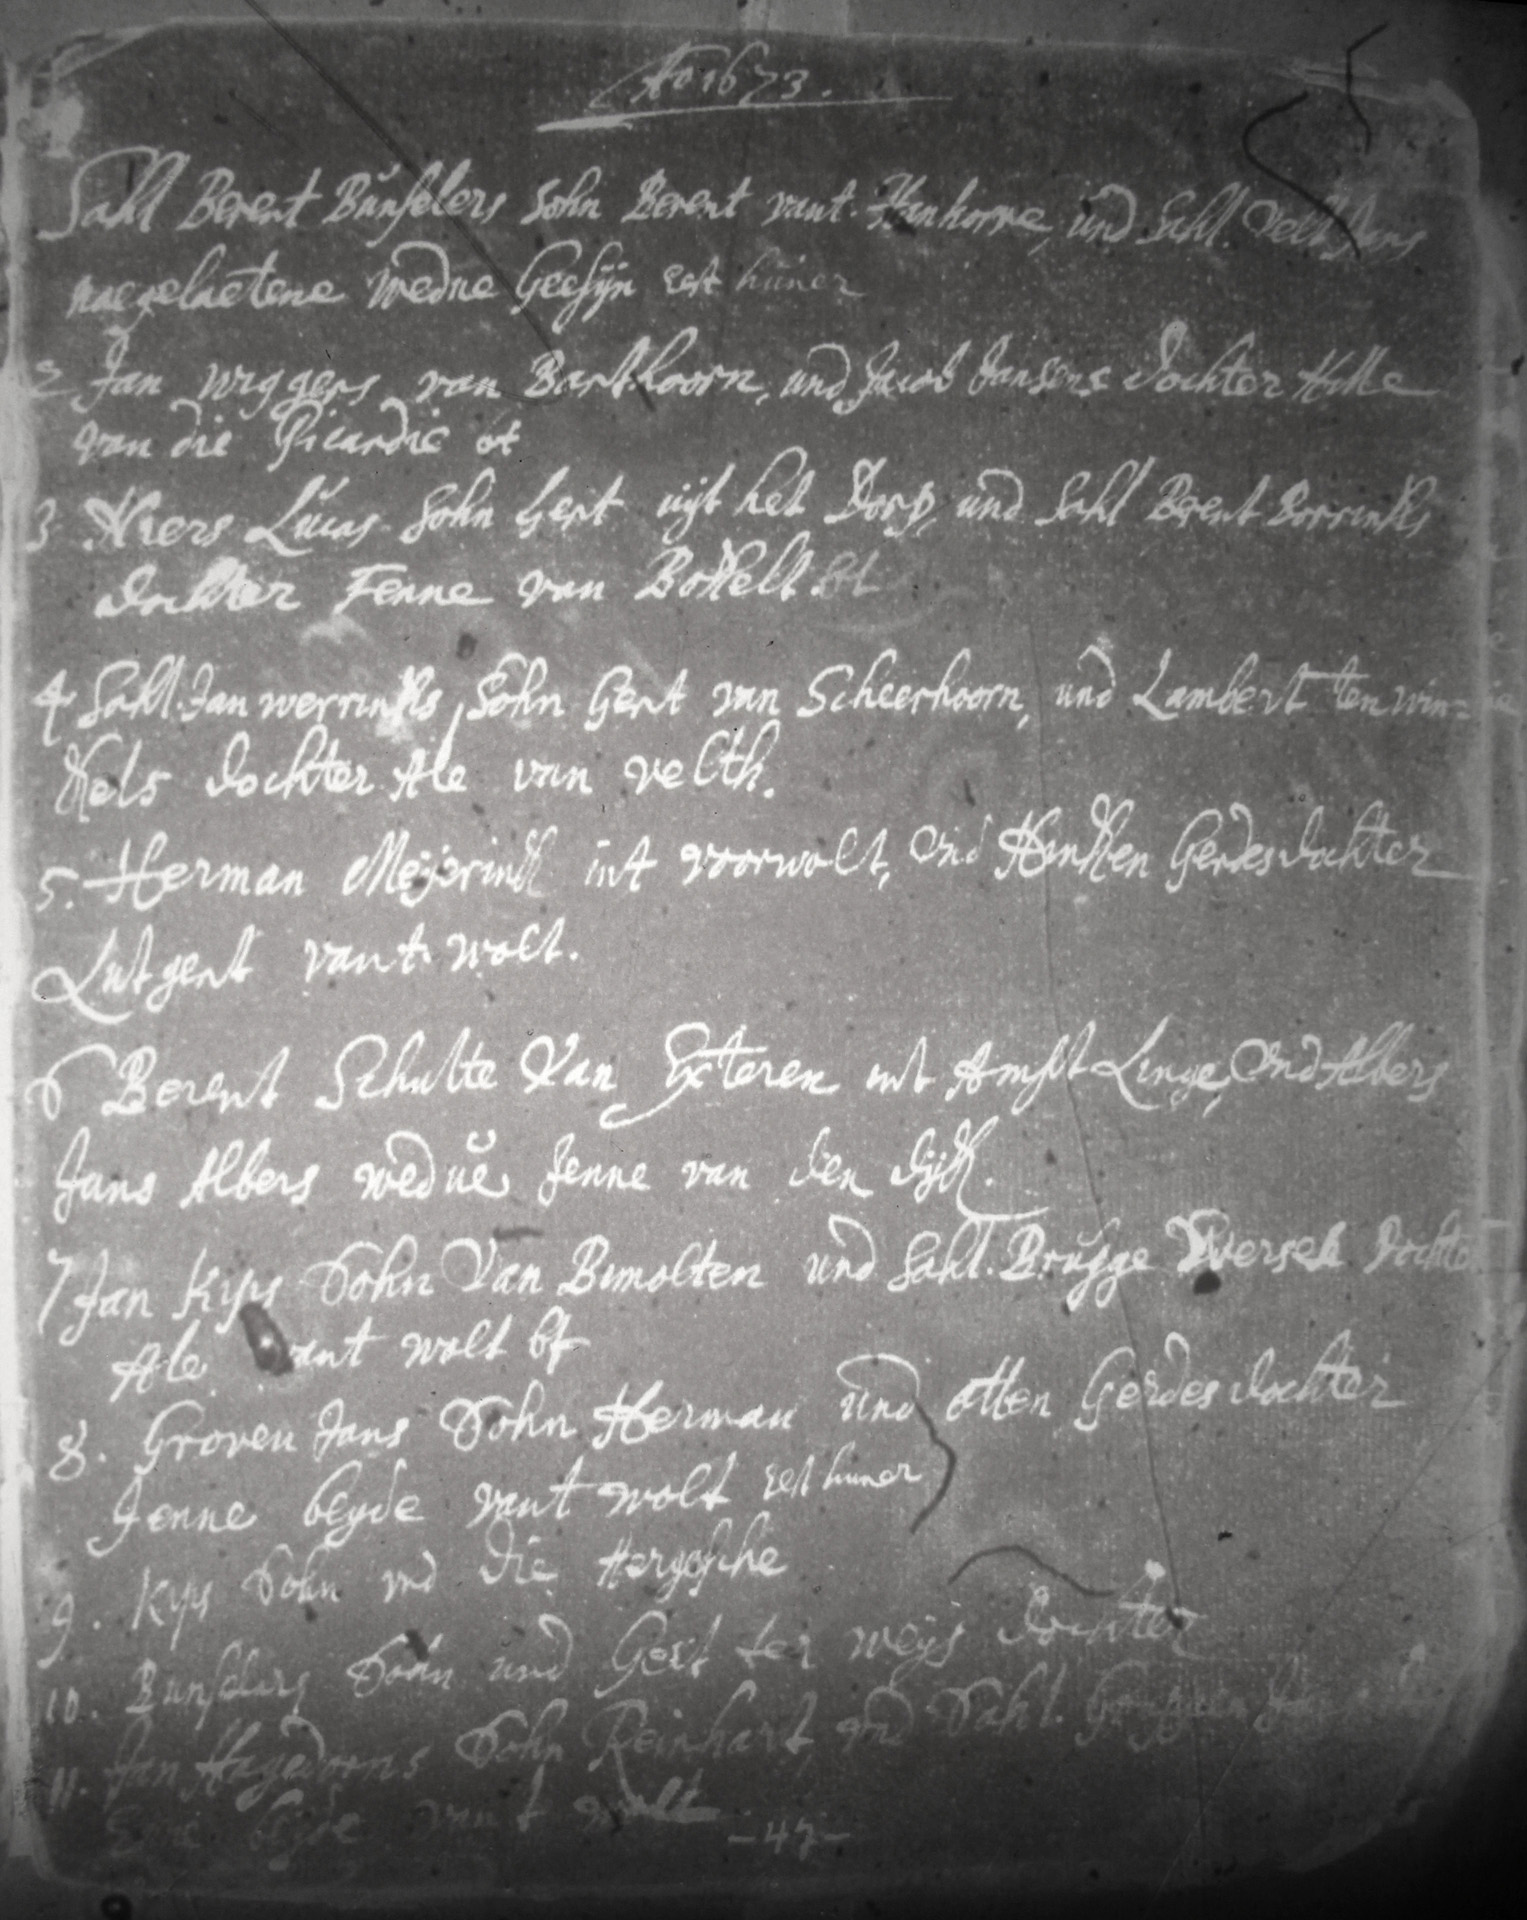 Ao 1673.
Sahl Berent Bŭnselers Sohn Berent vant Hankorve, und Sahl. Velt Jans
naegelaetene wedne Geesijn rest hŭner
2 Jan wiggers van Barkhoorn, und Jacob Jansens dochter Hille
van die Picardie bt
3 Niers Lŭcas Sohn Gert uijt het Dorp, und Sahl Berent Borrinks
dochter Fenne van Bokelt. bt
4 Sahl. Jan werrinks Sohn Gert van Scheerhoorn, und Lambert ten win=
kels dochter Ale van velth.
5. Herman Meijerink int voorwolt, Und Henken Gerdes dochter
Lutgert vant wolt.
6 Berent Schulte Van Exteren int Ampt Linge, Und Albers
Jans Albers wedŭe Jenne van den dijk.
7 Jan Kijs Sohn Van Bimolten und Sahl. Brŭgge dochte
Ale vant wolt bt
8. Groven Jans Sohn Herman und Otten Gerdes dochter
Jenne beyde vant wolt rest huner
9. Kijs Sohn und Die
10. Bunselers Sohn und Gert ter weijs dochter
11. Jan Hagedorns Sohn Reinhart und Sahl. Jan
beyde vant wolt
-47-